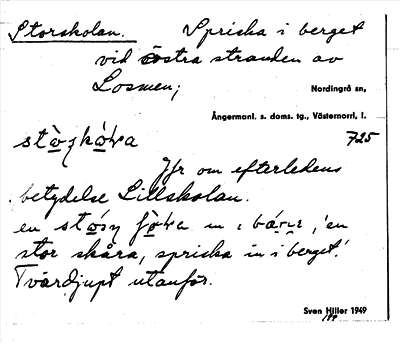 Storskolan. Spricka i berget
vid östra stranden av
Losmen;
Nordingrå sn,
Ångermanl. s. doms. tg., Västernorrl. l.
725
Jfr om efterledens
betydelse Lillskolan.
en m i 'en
stor skåra, spricka in i berget'.
Tvärdjupt utanför.
Sven Hiller 1949